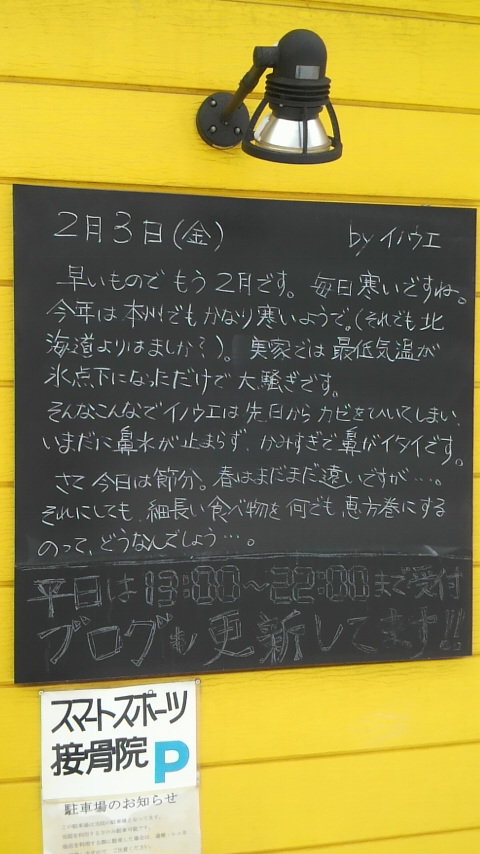 2月3日(金) by イノウエ
早いもので もう 2月です。毎日寒いですね。
今年は本州でもかなり寒いようで。(それでも北
海道よりはましか?)。実家では最低気温が
氷点下になっただけで大騒ぎです。
そんなこんなでイノウエは先日からカゼをひいてしまい、
いまだに鼻水が止まらず、かみすぎで鼻がイタイです。
さて今日は節分。春はまだまだ遠いですが…。
それにしても、細長い食べ物を何でも恵方巻にする
のって、どうなんでしょう…。
平日は13:00〜22:00まで受付
ブログも更新してます!!
スマートスポーツ
接骨院 P
駐車場のお知らせ